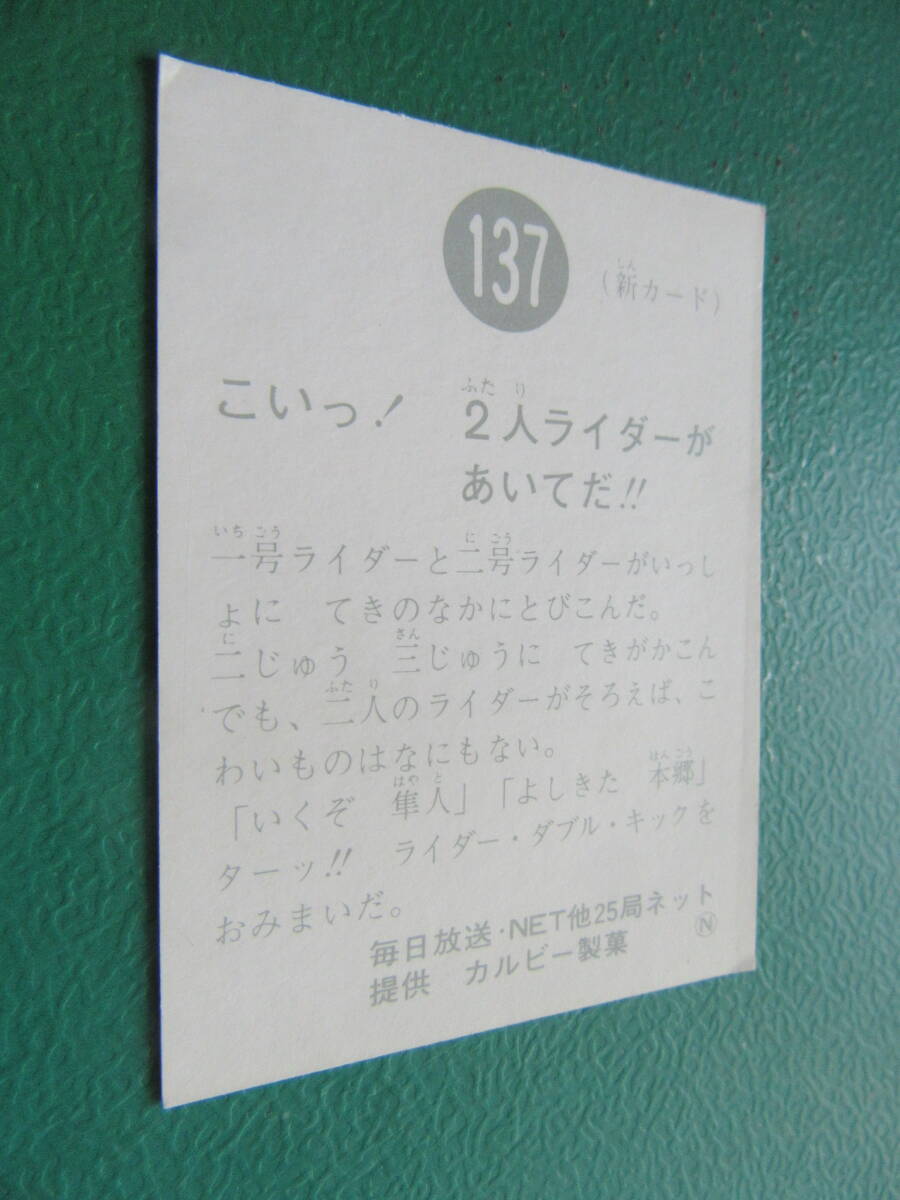 137
(新カード)
しん
こいっ! 2人ライダーが
ふたり
あいてだ!!
一号ライダーと二号ライダーがいっし
いちごう にごう
ょに てきのなかにとびこんだ。
二じゅう 三じゅうに てきがかこん
に さん
でも、二人のライダーがそろえば、こ
ふたり
わいものはなにもない。
「いくぞ 隼人」「よしきた 本郷」
はやと ほんごう
ターッ!! ライダー・ダブル・キックを
おみまいだ。
毎日放送・NET他25局ネット
提供 カルビー製菓 Ⓝ